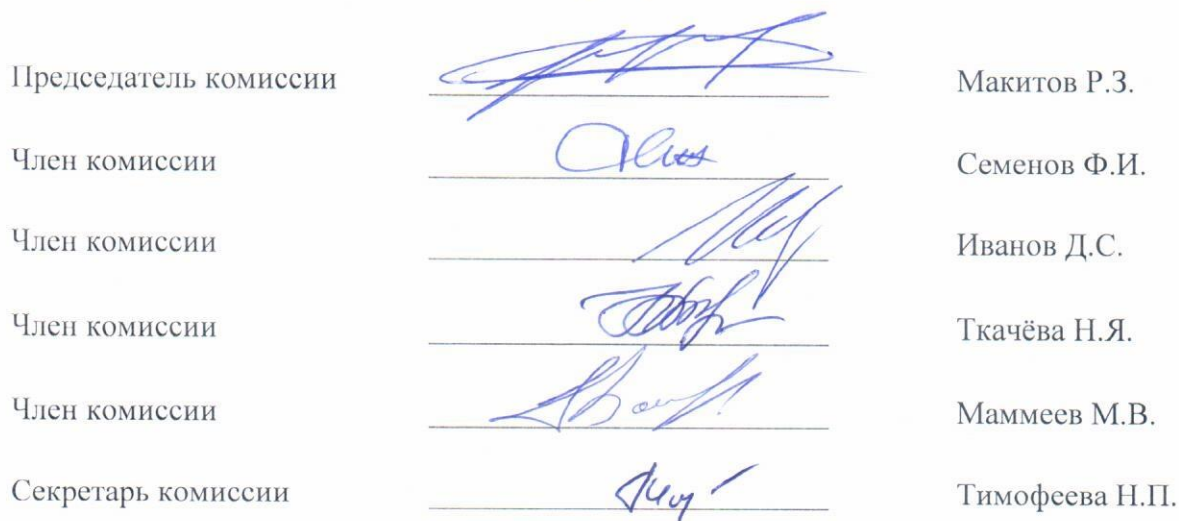 Председатель комиссии Макитов Р.З.
Член комиссии Семенов Ф.И.
Член комиссии Иванов Д.С.
Член комиссии Ткачёва Н.Я.
Член комиссии Маммеев М.В.
Секретарь комиссии Тимофеева Н.П.